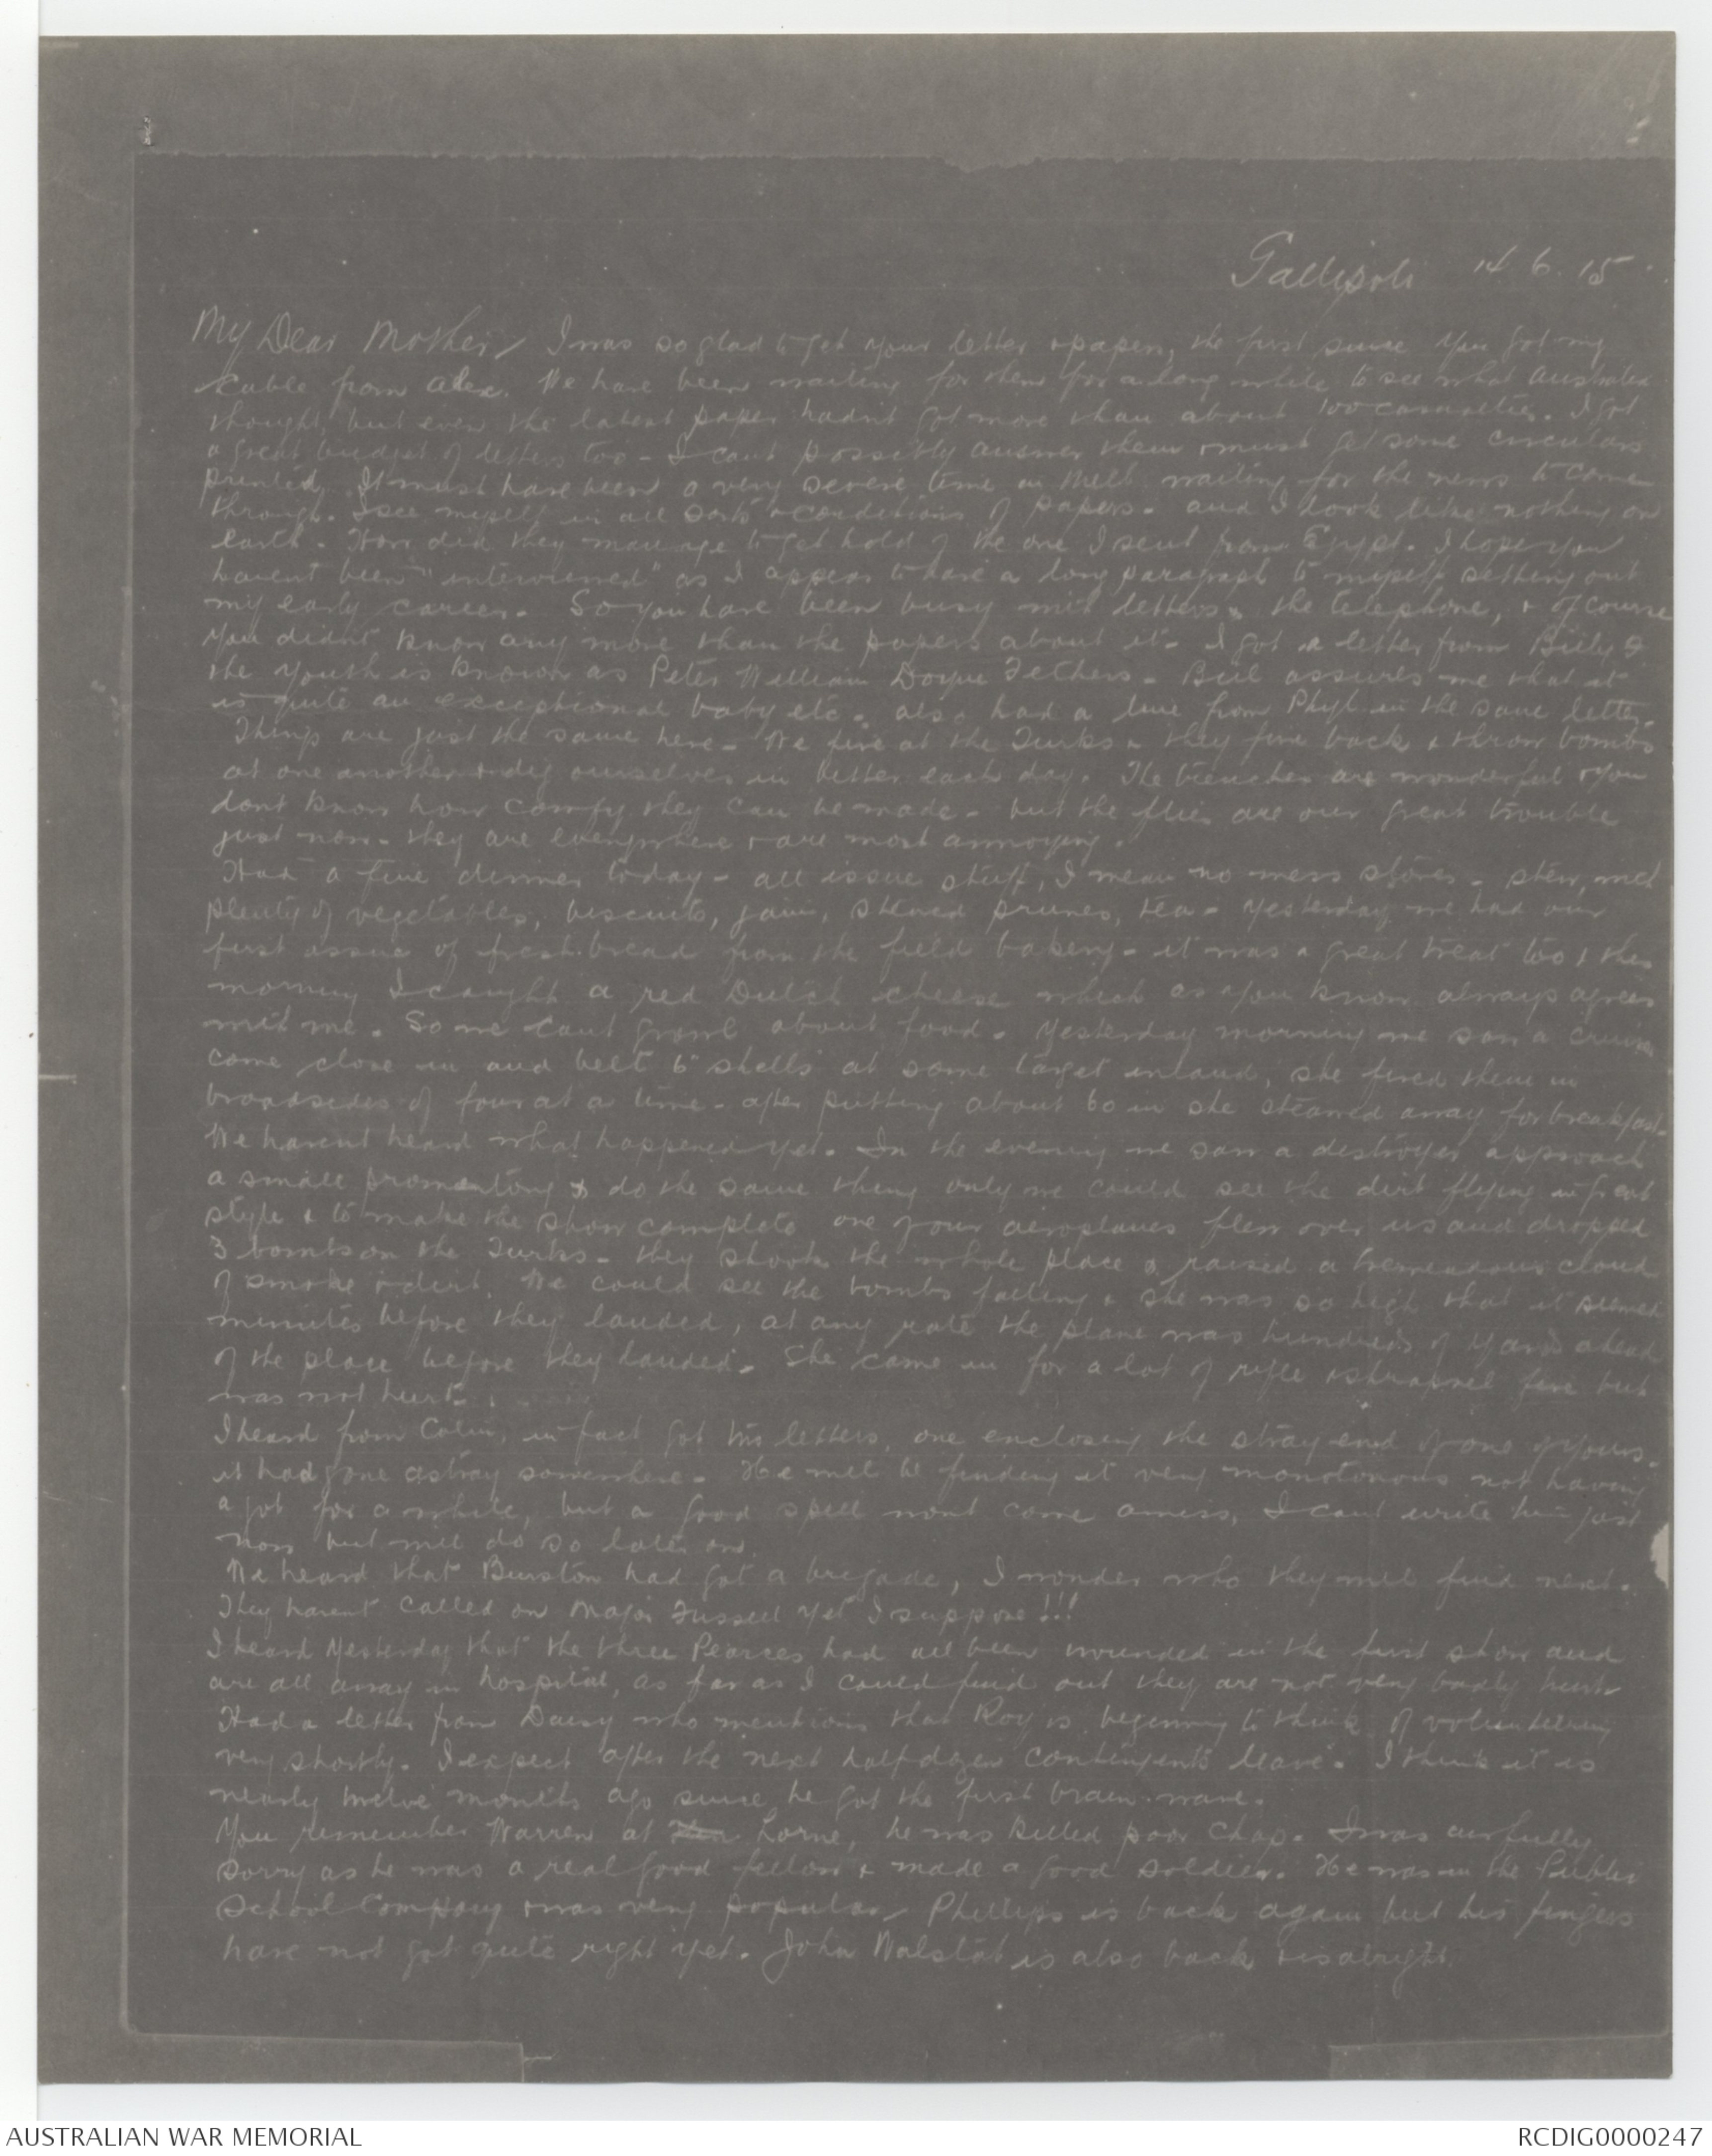 Gallipoli 14.6.15
My Dear Mother, I was so glad to get your letter & papers, the first since you got my
cable from Alex. We have been waiting for them for a long while to see what Australia
thought, but even the latest paper hadn't got more than about 100 casualties. I got
a great budget of letters too - I cant possibly answer them & must get some circulars
printed. It must have been a very severe time in Melb waiting for the news to come
through. I see myself in all sorts & conditions of papers. and I look like nothing on
earth. How did they manage to get hold of the one I sent from Egypt. I hope you
havent been "interviewed" as I appear to have a long paragraph to myself setting out
my early career. So you have been busy with letters & the telephone, & of course
you didn't know any more than the papers about it. I got a letter from Billy &
the youth is known as Peter William Doyne Fethers. Bill assures me that it
is quite an exceptional baby etc. also had a line from Phyl in the same letter.
Things are just the same here - We fire at the Turks & they fire back & throw bombs
at one another & dig ourselves in better each day. The trenches are wonderful & you
dont know how comfy they can be made - but the flies are our great trouble
just now - they are everywhere & are most annoying.
Had a fine dinner today - all issue stuff, I mean no mess stores - stew, with
plenty of vegetables, biscuits, jam, stewed prunes, tea - yesterday we had our
first issue of fresh bread from the field bakery - it was a great treat too & this
morning I caught a red Dutch cheese which as you know always agrees
with me. So we cant growl about food. Yesterday morning we saw a cruiser
come close in and belt 6" shells at some target inland, she fired them in
broadsides of four at a time - after putting about 60 in she steamed away for breakfast.
We havent heard what happened yet. In the evening we saw a destroyer approach
a small promontory & do the same thing only we could see the dirt flying in great
style & to make the show complete one of our aeroplanes flew over us and dropped
3 bombs on the Turks - they shook the whole place & raised a tremendous cloud
of smoke & dirt. We could see the bombs falling & she was so high that it seemed
minutes before they landed, at any rate the plane was hundreds of yards ahead
of the place before they landed. She came in for a lot of rifle & shrapnel fire but
was not hurt.
I heard from Colin, in fact got his letters, one enclosing the stray end of one of yours.
it had gone astray somewhere. He will be finding it very monotonous not having
a job for a while, but a good spell wont come amiss, I cant write him just
now but will do so later on.
We heard that Burston had got a brigade, I wonder who they will find next.
They havent called on Major Fussell yet I suppose!!!
I heard yesterday that the three Pearces had all been wounded in the first show and
are all away in hospital, as far as I could find out they are not very badly hurt.
Had a letter from Daisy who mentions that Roy is beginning to think of volunteering
very shortly. I expect after the next half dozen contingents leave. I think it is
nearly twelve months ago since he got the first brain-wave.
You remember Warren at Lorne, he was killed poor chap. I was awfully
sorry as he was a real good fellow & made a good soldier. He was in the Public
School Company & was very popular, Phillips is back again but his fingers
have not got quite right yet. John Walstab is also back & is alright.
AUSTRALIAN WAR MEMORIAL
RCDIG0000247